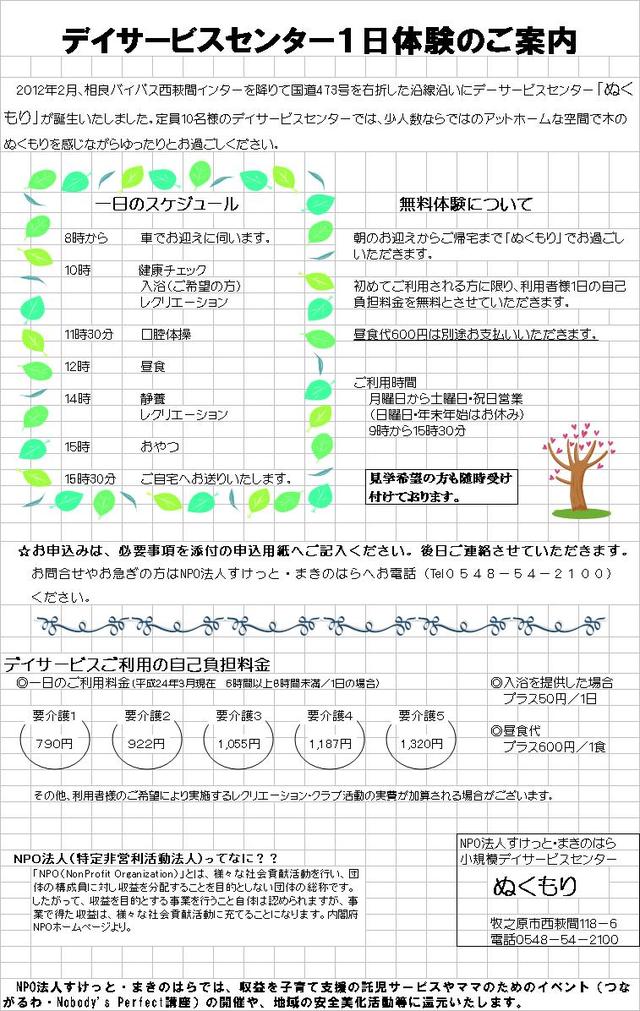 デイサービスセンター1日体験のご案内
2012年2月、相良バイパス西萩間インターを降りて国道473号を右折した沿線沿いにデーサービスセンター「ぬく
もり」が誕生いたしました。定員10名様のデイサービスセンターでは、少人数ならではのアットホームな空間で木の
ぬくもりを感じながらゆったりとお過ごしください。
一日のスケジュール
8時から 車でお迎えに伺います。
10時 健康チェック
入浴(ご希望の方)
レクリエーション
11時30分 口腔体操
12時 昼食
14時 静養
レクリエーション
15時 おやつ
15時30分 ご自宅へお送りいたします。
無料体験について
朝のお迎えからご帰宅まで「ぬくもり」でお過ごし
いただきます。
初めてご利用される方に限り、利用者様1日の自己
負担料金を無料とさせていただきます。
昼食代600円は別途お支払いいただきます。
ご利用時間
月曜日から土曜日・祝日営業
(日曜日・年末年始はお休み)
9時から15時30分
見学希望の方も随時受け
付けております。
☆お申込みは、必要事項を添付の申込用紙へご記入ください。後日ご連絡させていただきます。
お問合せやお急ぎの方はNPO法人すけっと・まきのはらへお電話(Tel0548-54-2100)
ください。
デイサービスご利用の自己負担料金
◎一日のご利用料金(平成24年3月現在 6時間以上8時間未満/1日の場合)
要介護1 要介護2 要介護3 要介護4 要介護5
790円 922円 1,055円 1,187円 1,320円
◎入浴を提供した場合
プラス50円/1日
◎昼食代
プラス600円/1食
その他、利用者様のご希望により実施するレクリエーション・クラブ活動の実費が加算される場合がございます。
NPO法人(特定非営利活動法人)ってなに??
「NPO(NonProfit Organization)」とは、様々な社会貢献活動を行い、団
体の構成員に対し収益を分配することを目的としない団体の総称です。
したがって、収益を目的とする事業を行うこと自体は認められますが、事
業で得た収益は、様々な社会貢献活動に充てることになります。内閣府
NPOホームページより。
NPO法人すけっと・まきのはら
小規模デイサービスセンター
ぬくもり
牧之原市西萩間118-6
電話0548-54-2100
NPO法人すけっと・まきのはらでは、収益を子育て支援の託児サービスやママのためのイベント(つな
がるわ・Nobody's Perfect講座)の開催や、地域の安全美化活動等に還元いたします。